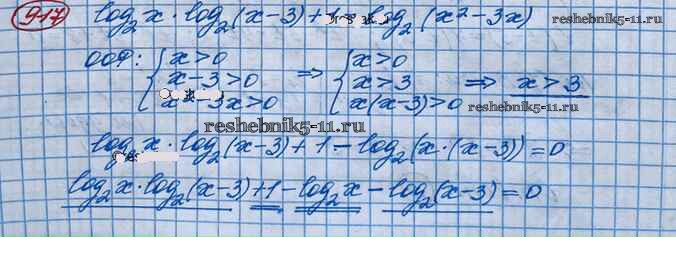 917 log₂x · log₂(x-3)+1 = log₂(x²-3x)
reshebnik5-11.ru
ООФ: { x>0 ⇒ { x>0
x-3>0 x>3 ⇒ x>3
x²-3x>0 x(x-3)>0 reshebnik5-11.ru
reshebnik5-11.ru
log₂x · log₂(x-3)+1-log₂(x·(x-3))=0
log₂x·log₂(x-3)+1-log₂x-log₂(x-3)=0